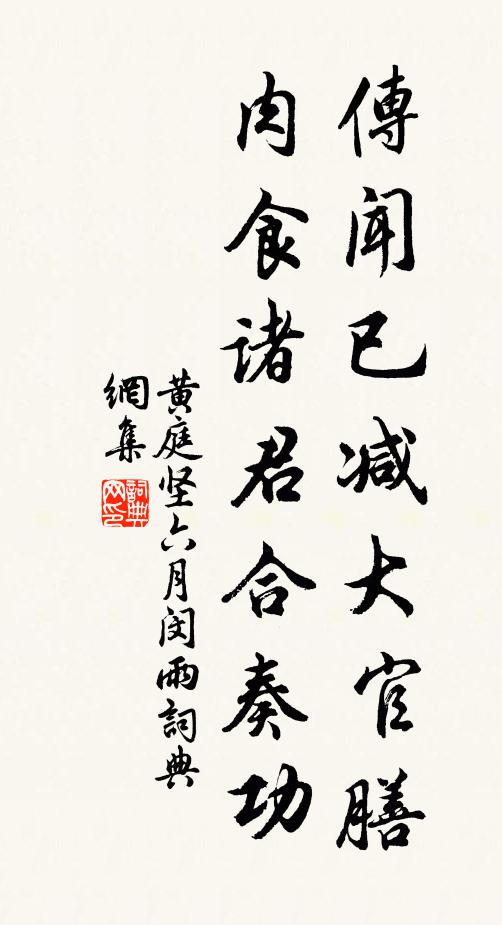 傳聞已減大官膳
肉食諸君合奏功
黄庭坚六月闵雨詞典
網集
詞典
网印